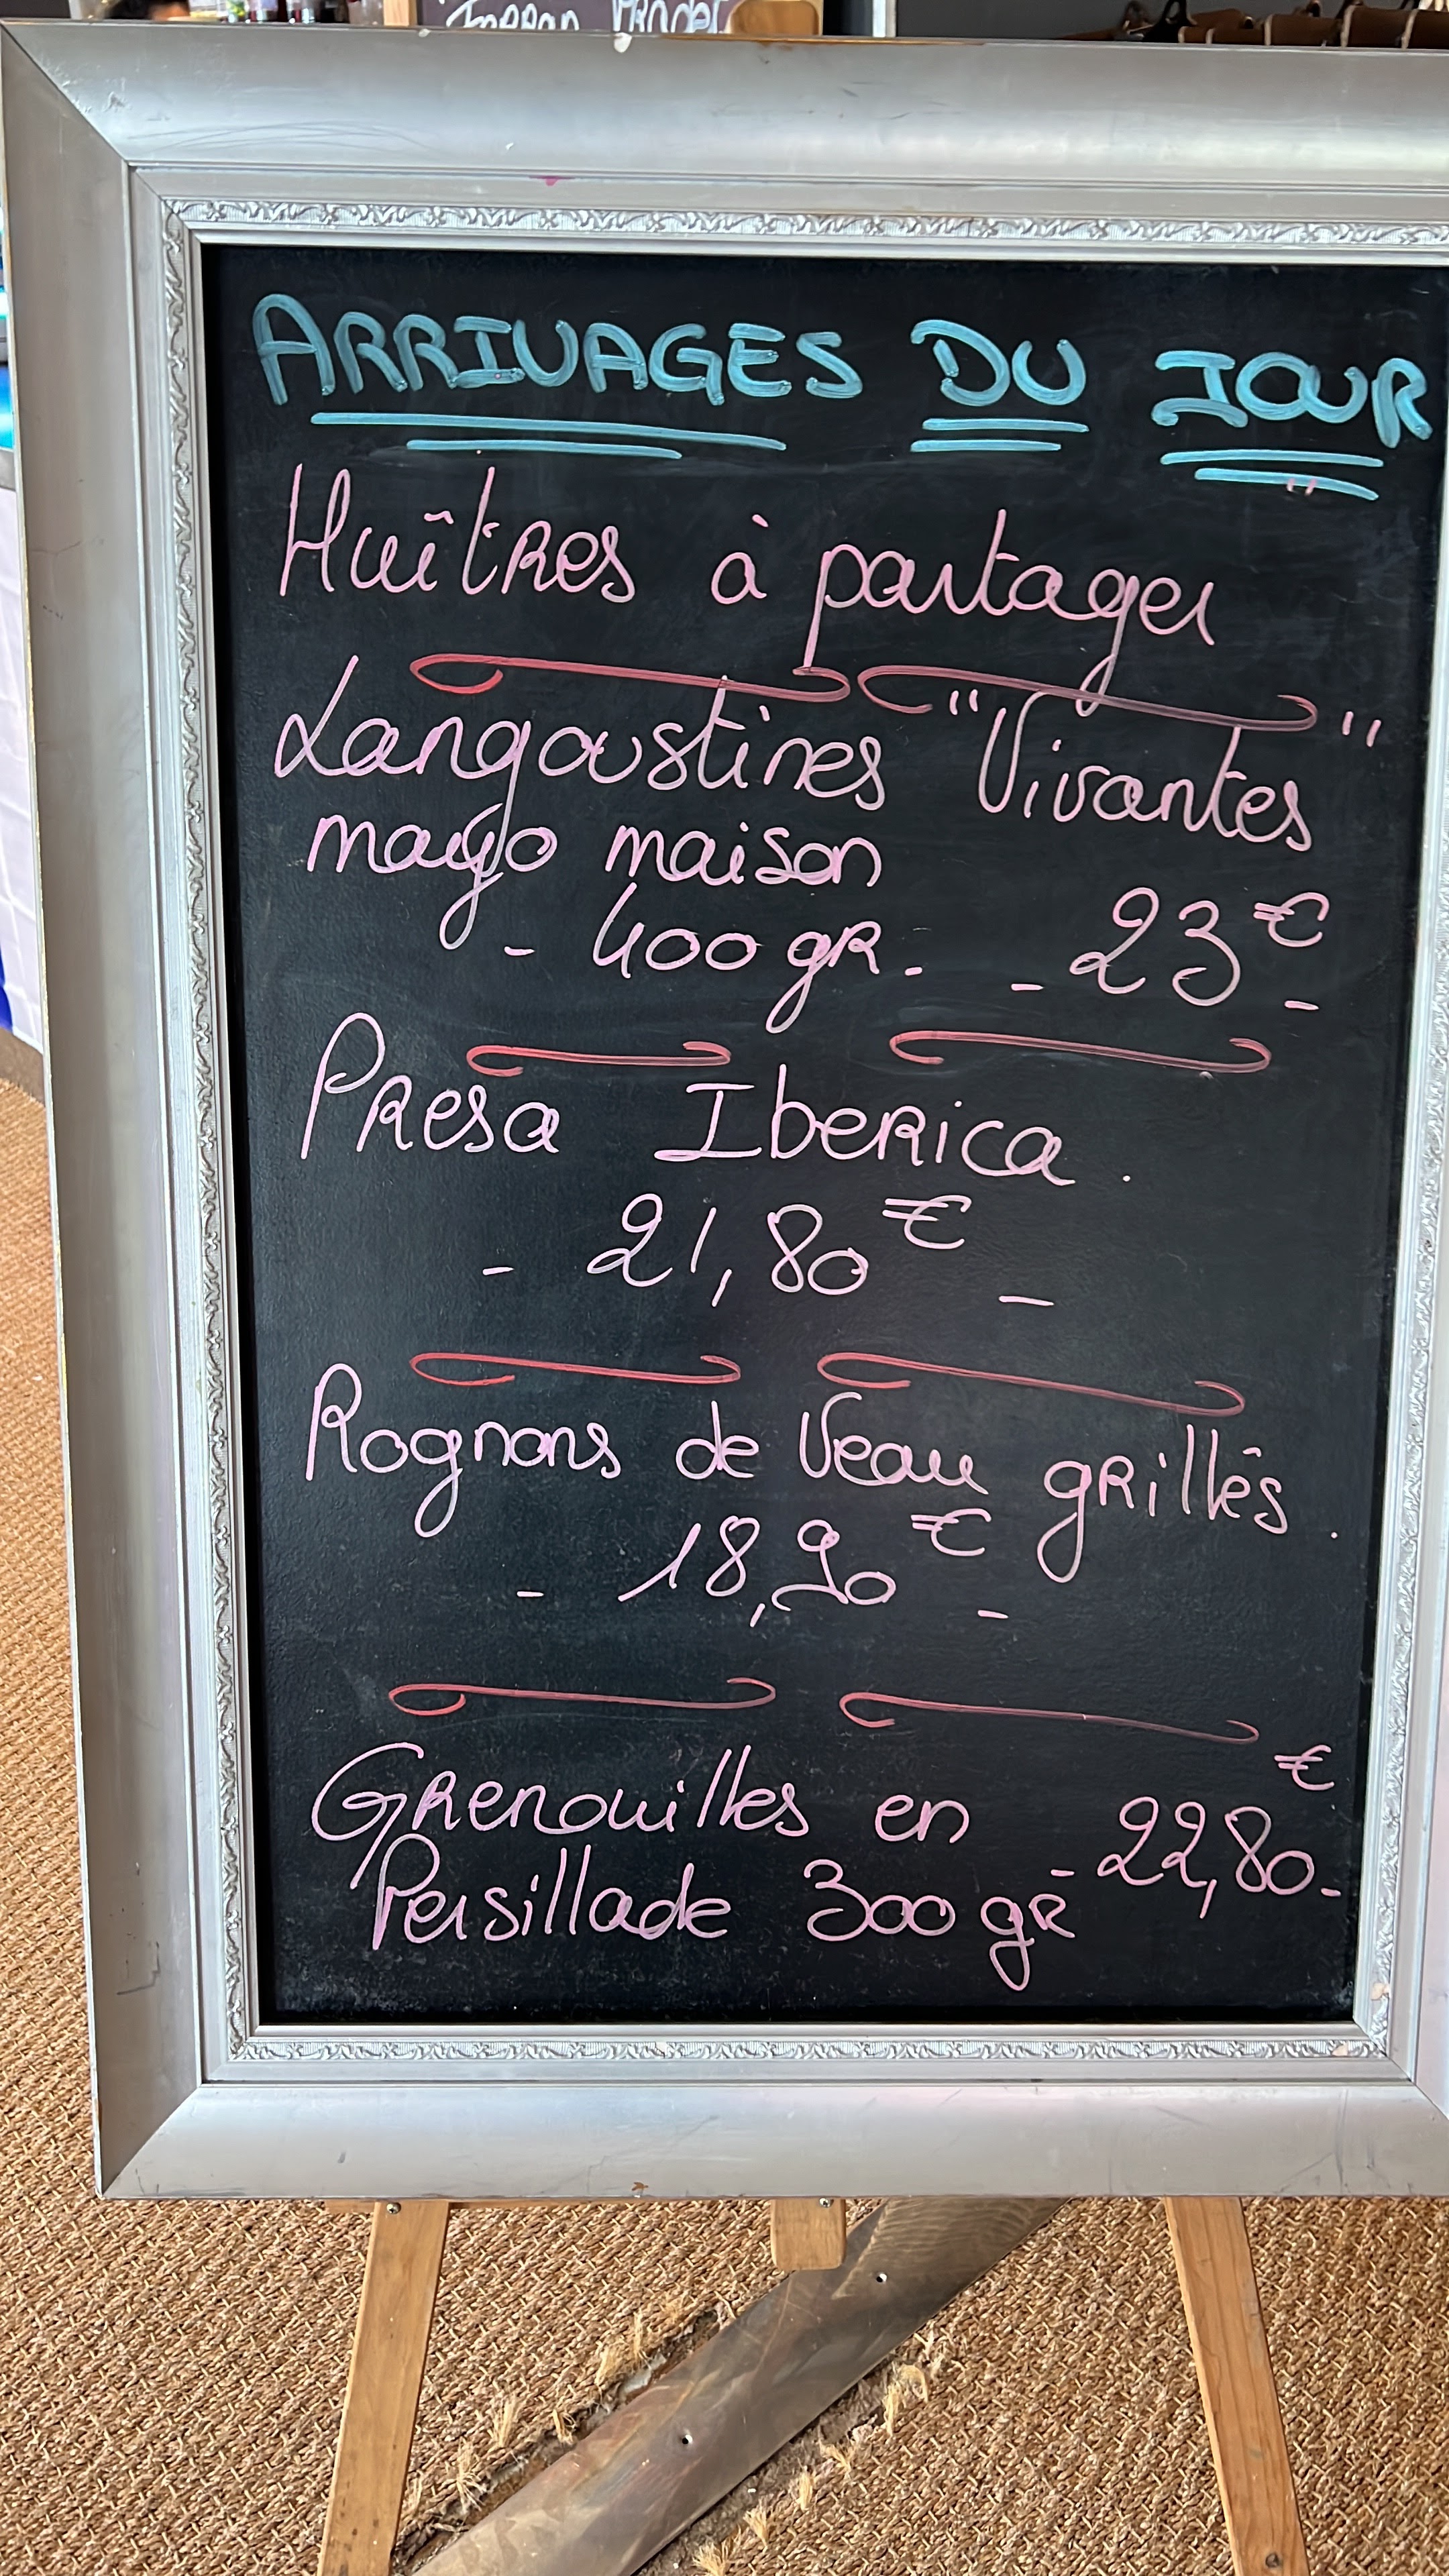 ARRIVAGES DU JOUR
Huîtres à partager
Langoustines "Vivantes"
mayo maison
- 400 gR - - 23 € -
PResa IbeRica.
- 21,80 € -
Rognons de Veau gRillés.
- 18,90 € -
GRenouilles en - 22,80 € -
Persillade 300 gR